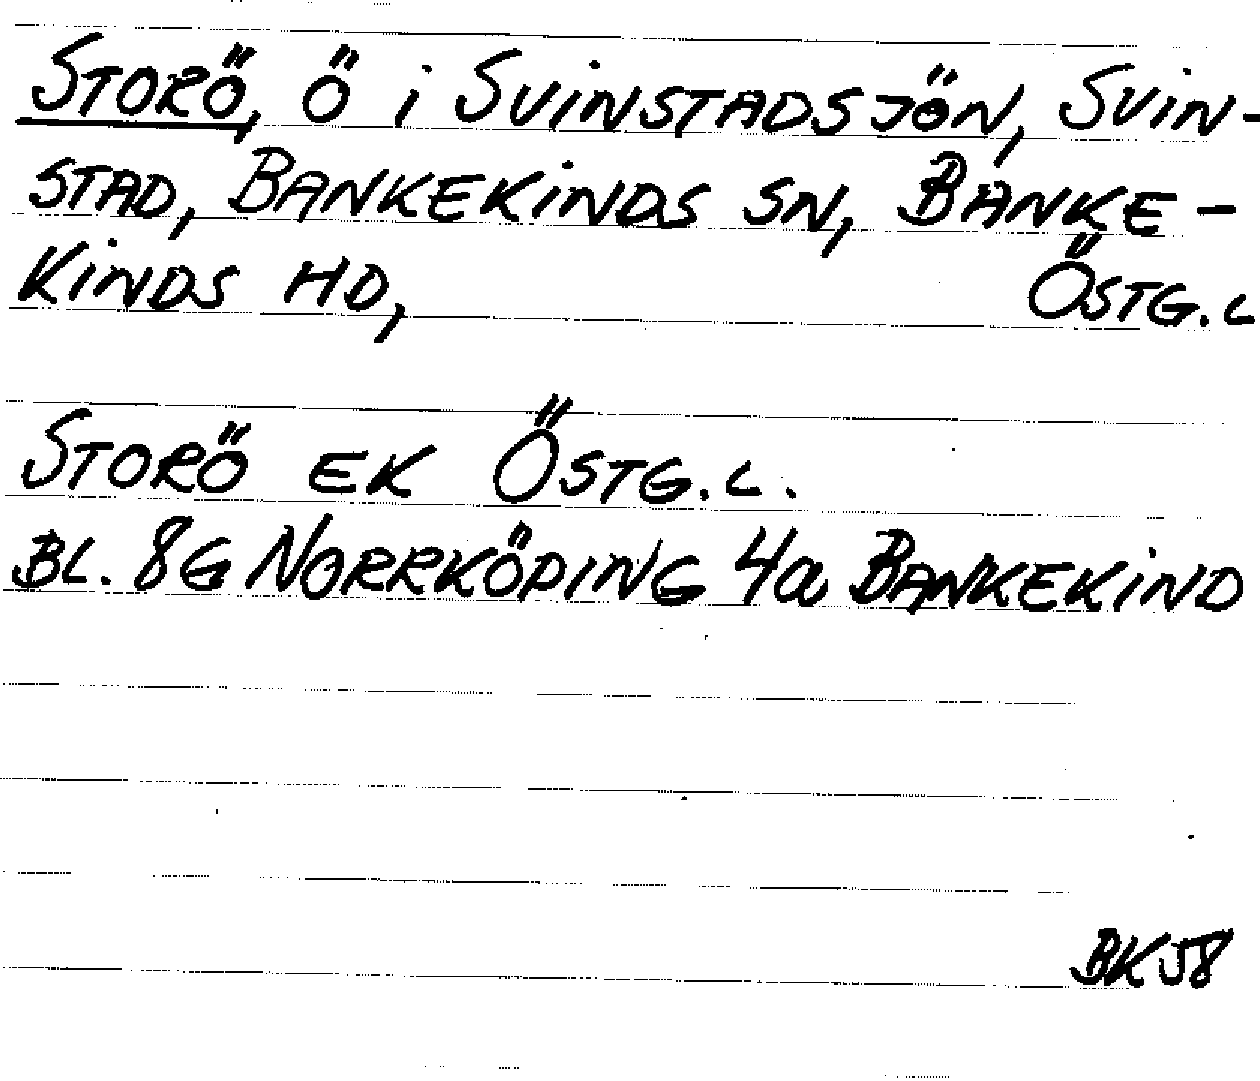 STORÖ, Ö i SVINSTADSJÖN, SVIN-
STAD, BANKEKINDS SN, BANKE-
KINDS HD, ÖSTG.L
STORÖ EK ÖSTG.L.
BL. 8G NORRKÖPING 4a BANKEKIND
BK58